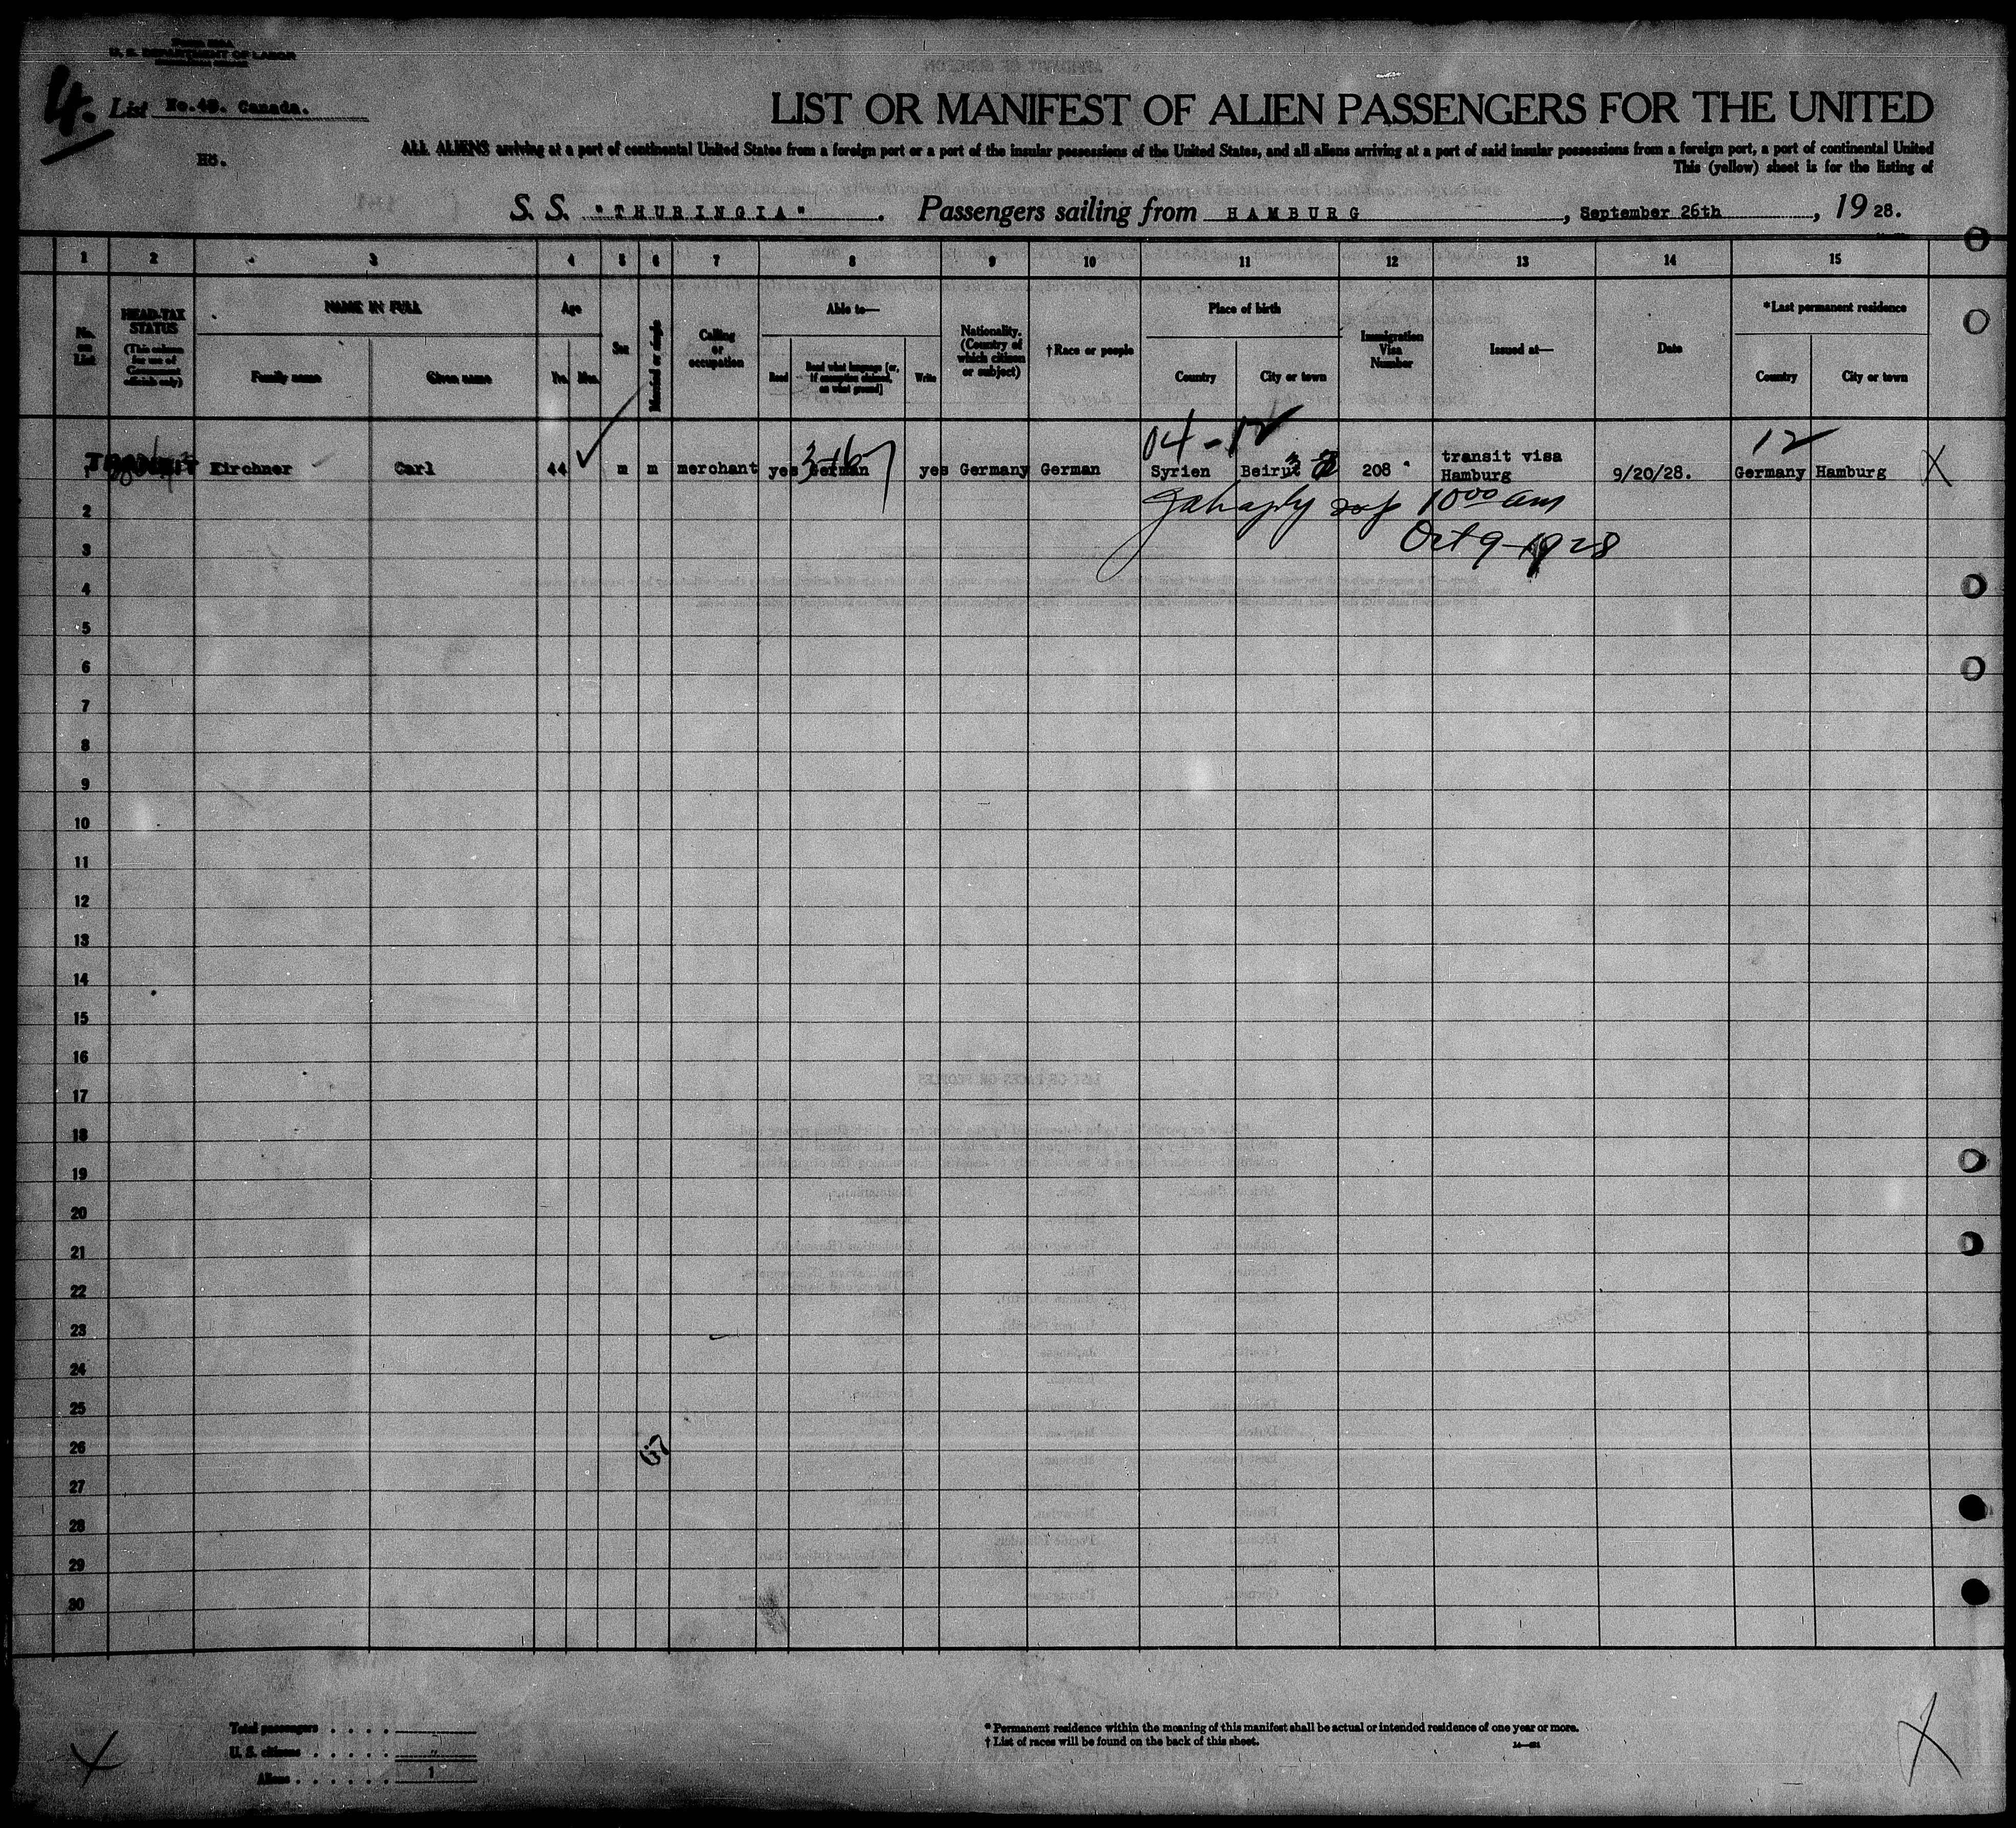 U. S. DEPARTMENT OF LABOR
4. List No.49. Canada.
LIST OR MANIFEST OF ALIEN PASSENGERS FOR THE UNITED
Hö.
ALL ALIENS arriving at a port of continental United States from a foreign port or a port of the insular possessions of the United States, and all aliens arriving at a port of said insular possessions from a foreign port, a port of continental United
This (yellow) sheet is for the listing of
S. S. "THURINGIA". Passengers sailing from HAMBURG, September 26th, 19 28.
1 2 3 4 5 6 7 8 9 10 11 12 13 14 15
No. on List
HEAD-TAX STATUS (This column for use of Government officials only)
NAME IN FULL
Family name
Given name
Age
Yrs. Mos.
Sex
Married or single
Calling or occupation
Able to—
Read
Read what language [or, if exemption claimed, on what ground]
Write
Nationality. (Country of which citizen or subject)
† Race or people
Place of birth
Country
City or town
Immigration Visa Number
Issued at—
Date
*Last permanent residence
Country
City or town
04-12
12
1 TRANSIT Kirchner Carl 44 m m merchant yes German yes Germany German Syrien Beirut 208 transit visa Hamburg 9/20/28. Germany Hamburg X
1000 am
Oct 9-1928
2
3
4
5
6
7
8
9
10
11
12
13
14
15
16
17
18
19
20
21
22
23
24
25
26
27
28
29
30
67
Total passengers . . . .
U. S. citizens . . . . .
Aliens . . . . . . 1
* Permanent residence within the meaning of this manifest shall be actual or intended residence of one year or more.
† List of races will be found on the back of this sheet.
X
X